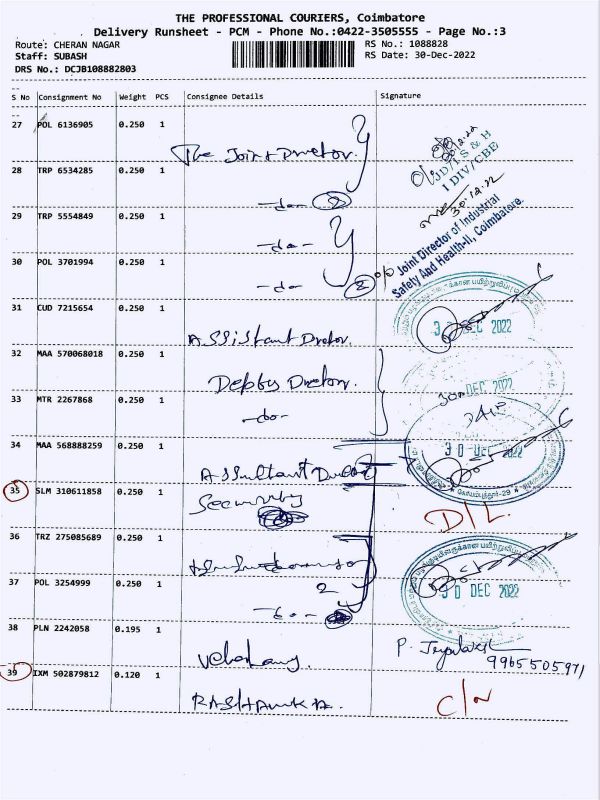 THE PROFESSIONAL COURIERS, Coimbatore
Delivery Runsheet - PCM - Phone No.:0422-3505555 - Page No.:3
Route: CHERAN NAGAR
RS No.: 1088828
Staff: SUBASH
RS Date: 30-Dec-2022
DRS No.: DCJB108882803
S No Consignment No Weight PCS Consignee Details Signature
27 POL 6136905 0.250 1 The Joint Director
28 TRP 6534285 0.250 1 -do- 2
29 TRP 5554849 0.250 1 -do-
30 POL 3701994 0.250 1 -do- 2
30.12.22
JD/I S & H
I DIV/CBE
30.12.22
O/o Joint Director of Industrial
Safety And Health-II, Coimbatore.
31 CUD 7215654 0.250 1 Assistant Director
DEC 2022
32 MAA 570068018 0.250 1 Deputy Director
DEC 2022
33 MTR 2267868 0.250 1 -do-
34 MAA 568888259 0.250 1 Assistant
30 DEC 2022
கோயம்புத்தூர்-29
35 SLM 310611858 0.250 1 Security
D/L
36 TRZ 275085689 0.250 1
37 POL 3254999 0.250 1 -do-
30 DEC 2022
38 PLN 2242058 0.195 1
P.
9965505971
39 IXM 502879812 0.120 1
C/N